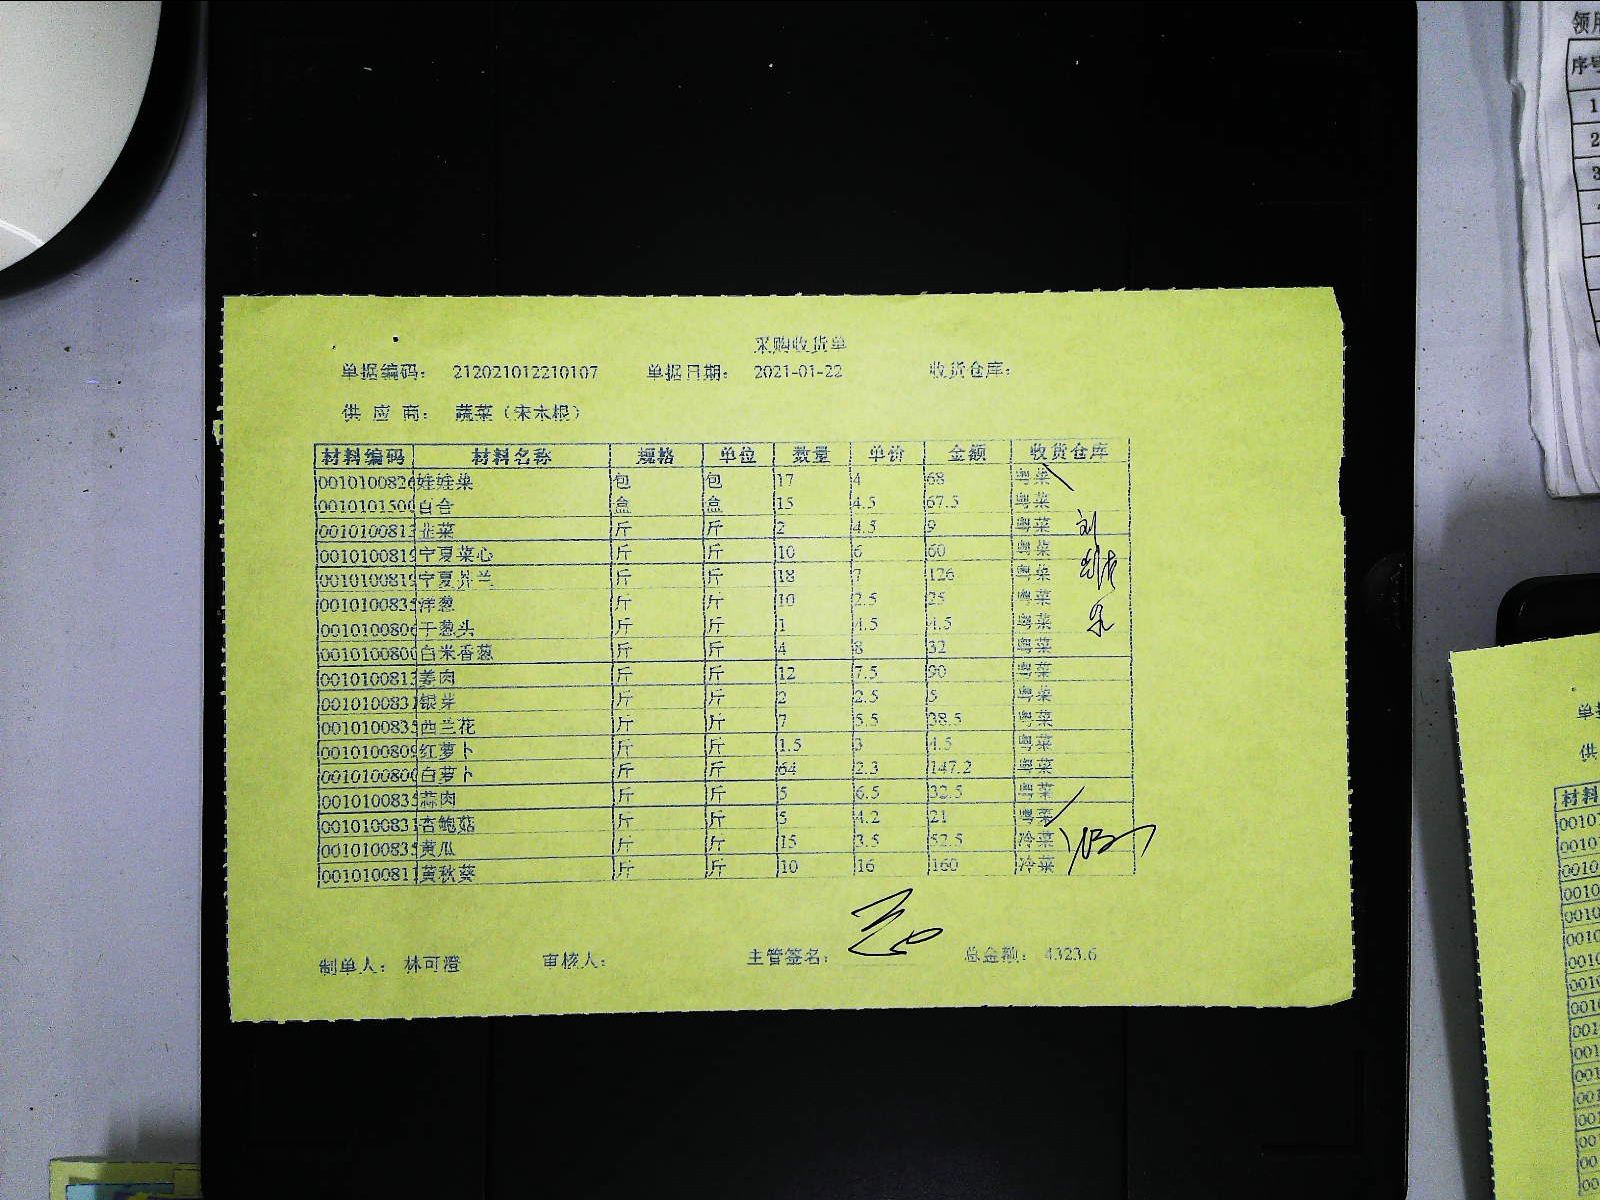 采购收货单
单据编码： 212021012210107 单据日期： 2021-01-22 收货仓库：
供 应 商： 蔬菜（宋木根）
材料编码 材料名称 规格 单位 数量 单价 金额 收货仓库
0010100826 娃娃菜 包 包 17 4 68 粤菜
001010150 百合 盒 盒 15 4.5 67.5 粤菜
001010081 韭菜 斤 斤 2 4.5 9 粤菜
001010081 宁夏菜心 斤 斤 10 6 60 粤菜
001010081 宁夏芥兰 斤 斤 18 7 126 粤菜
001010083 洋葱 斤 斤 10 2.5 25 粤菜
001010080 干葱头 斤 斤 1 4.5 4.5 粤菜
001010080 白米香葱 斤 斤 4 8 32 粤菜
001010081 姜肉 斤 斤 12 7.5 90 粤菜
001010083 银芽 斤 斤 2 2.5 5 粤菜
001010083 西兰花 斤 斤 7 5.5 38.5 粤菜
001010080 红萝卜 斤 斤 1.5 3 4.5 粤菜
001010080 白萝卜 斤 斤 64 2.3 147.2 粤菜
001010083 蒜肉 斤 斤 5 6.5 32.5 粤菜
001010083 杏鲍菇 斤 斤 5 4.2 21 粤菜
001010083 黄瓜 斤 斤 15 3.5 52.5 冷菜
001010081 黄秋葵 斤 斤 10 16 160 冷菜
制单人： 林可澄 审核人： 主管签名： 总金额： 4323.6
领用
序号
1
2
3
单据
供
材料